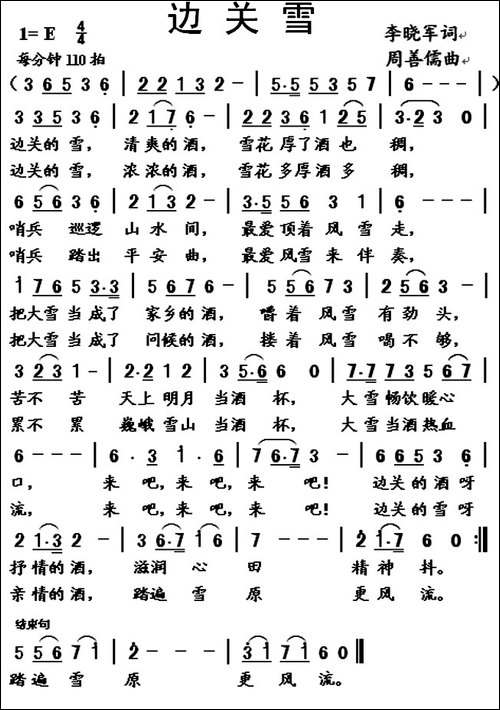 边关雪
1= E 4/4 李晓军词
每分钟 110 拍 周善儒曲
( 3 6 5 3 6 | 2 2 1 3 2 - | 5·5 5 5 3 5 7 | 6 - - - )
3 3 5 3 6 | 2 1 7 6 - | 2 2 3 6 1 2 5 | 3·2 3 0 |
边关的雪, 清爽的酒, 雪花厚了酒也稠,
边关的雪, 浓浓的酒, 雪花多厚酒多稠,
6 5 6 3 6 | 2 1 3 2 - | 3·5 5 5 6 3 1 | 6 - - - |
哨兵巡逻山水间, 最爱顶着风雪走,
哨兵踏出平安曲, 最爱风雪来伴奏,
1 7 6 5 3·3 | 5 6 7 6 - | 5 5 6 7 6 | 2 5 6 3 - |
把大雪当成了家乡的酒, 嚼着风雪有劲头,
把大雪当成了问候的酒, 搂着风雪喝不够,
3 2 3 1 - | 2·2 1 2 | 3 5·6 6 0 | 7·7 7 3 5 6 7 |
苦不苦天上明月当酒杯, 大雪畅饮暖心
累不累巍峨雪山当酒杯, 大雪当酒热血
6 - - - | 6· 3 1· 6 | 7 6·7 3 - | 6 6 5 3 6 |
口, 来吧,来吧,来吧! 边关的酒呀
流, 来吧,来吧,来吧! 边关的雪呀
2 1·3 2 - | 3·6 7 1 6 | 7 - - - | 2 1·7 6 0 :‖
抒情的酒, 滋润心田精神抖。
亲情的酒, 踏遍雪原更风流。
结束句
5 5 6 7 1 | 2 - - - | 3 1 7 1 6 0 ‖
踏遍雪原更风流。